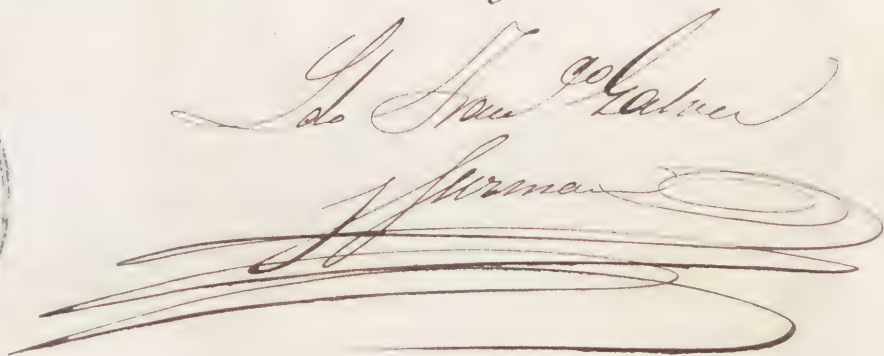 Ldo Franco Galvez
y Guzman